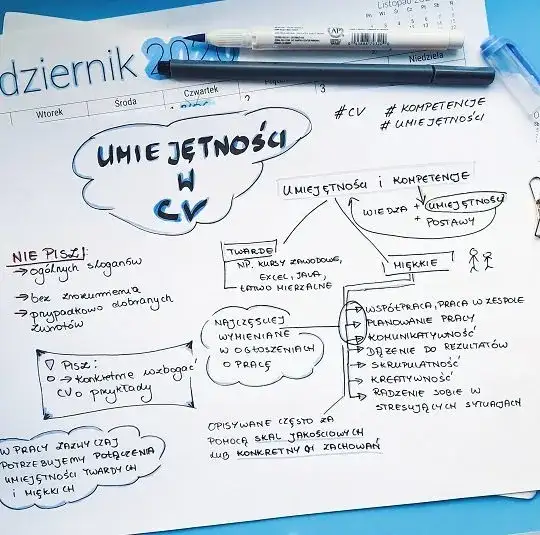 Listopad
dziernik 2020
Niedziela
Wtorek
Środa
Czwartek
2
3
# CV
# KOMPETENCJE
# UMIEJĘTNOŚCI
UMIEJĘTNOŚCI
W
CV
UMIEJĘTNOŚCI i KOMPETENCJE
WIEDZA + UMIEJĘTNOŚCI
+ POSTAWY
NIE PISZ!:
→ ogólnych sloganów
→ bez zrozumienia
→ przypadkowo dobranych
zwrotów
TWARDE
NP. KURSY ZAWODOWE,
EXCEL, JAVA,
ŁATWO MIERZALNE
MIĘKKIE
NAJCZĘŚCIEJ
WYMIENIANE
W OGŁOSZENIACH
O PRACĘ
WSPÓŁPRACA, PRACA W ZESPOLE
PLANOWANIE PRACY
KOMUNIKATYWNOŚĆ
DĄŻENIE DO REZULTATÓW
SKRUPULATNOŚĆ
KREATYWNOŚĆ
RADZENIE SOBIE W
STRESUJĄCYCH SYTUACJACH
PISZ:
→ konkretnie wzbogacać
CV o przykłady
OPISYWANE CZĘSTO ZA
POMOCĄ SKAL JAKOŚCIOWYCH
LUB KONKRETNYCH ZACHOWAŃ
W PRACY ZAZWYCZAJ
POTRZEBUJEMY POŁĄCZENIA
UMIEJĘTNOŚCI TWARDYCH
i MIĘKKICH